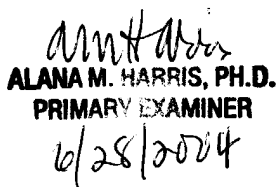 ALANA M. HARRIS, PH.D.
PRIMARY EXAMINER
6/28/2004